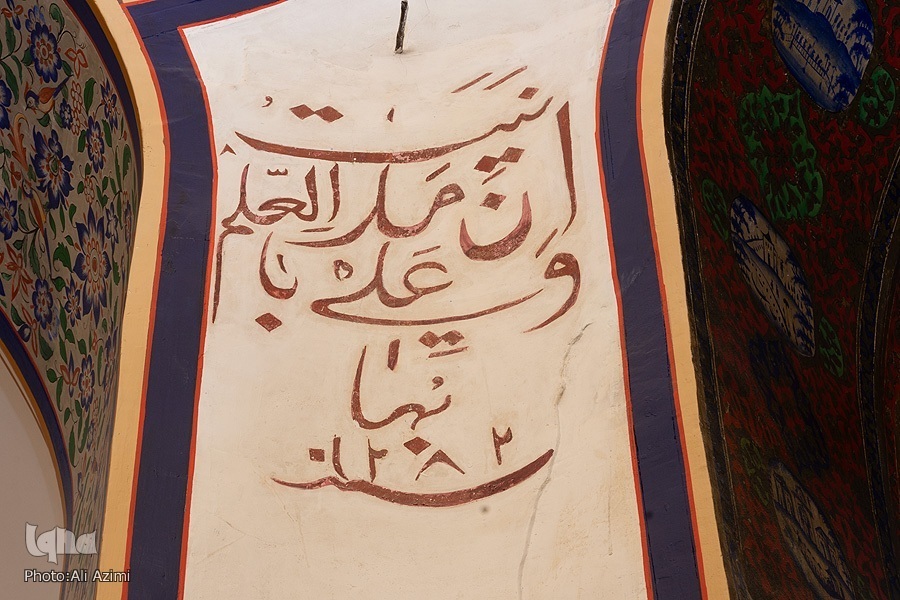 اَنَا مَدینَت العِلم
وَ عَلی با
بُها
سنه ۱۲۸۲
iqna
Photo:Ali Azimi